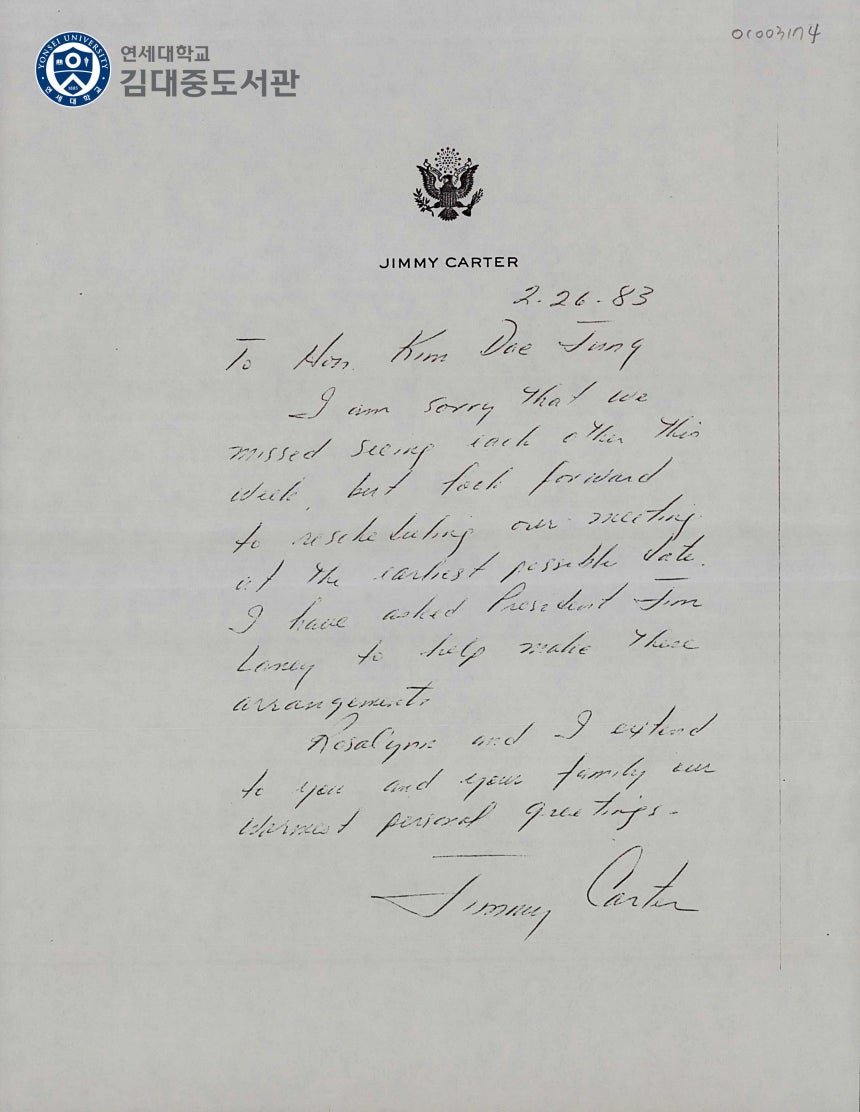 01003174
YONSEI UNIVERSITY
1885
연세대학교
연세대학교
김대중도서관
JIMMY CARTER
2-26-83
To Hon. Kim Dae Jung
I am sorry that we
missed seeing each other this
week, but look forward
to rescheduling our meeting
at the earliest possible date.
I have asked President Jim
Laney to help make these
arrangements.
Rosalynn and I extend
to you and your family our
warmest personal greetings.
Jimmy Carter